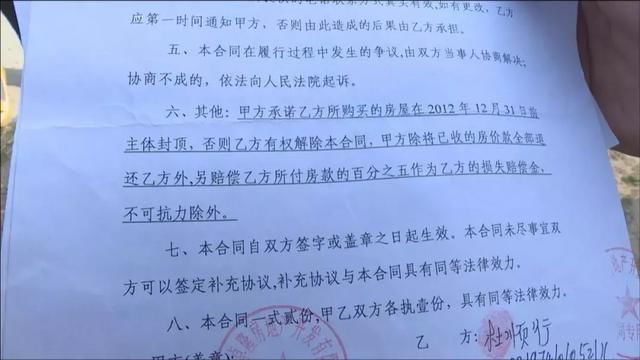 应第一时间通知甲方、否则由此造成的后果由乙方承担。
五、本合同在履行过程中发生的争议,由双方当事人协商解决;
协商不成的,依法向人民法院起诉。
六、其他:甲方承诺乙方所购买的房屋在2012年12月31日前
主体封顶,否则乙方有权解除本合同,甲方除将已收的房价款全部退
还乙方外,另赔偿乙方所付房款的百分之五作为乙方的损失赔偿金,
不可抗力除外。
七、本合同自双方签字或盖章之日起生效。本合同未尽事宜双
方可以签定补充协议,补充协议与本合同具有同等法律效力。
八、本合同一式贰份,甲乙双方各执壹份,具有同等法律效力。
乙 方:
甲方(盖章):